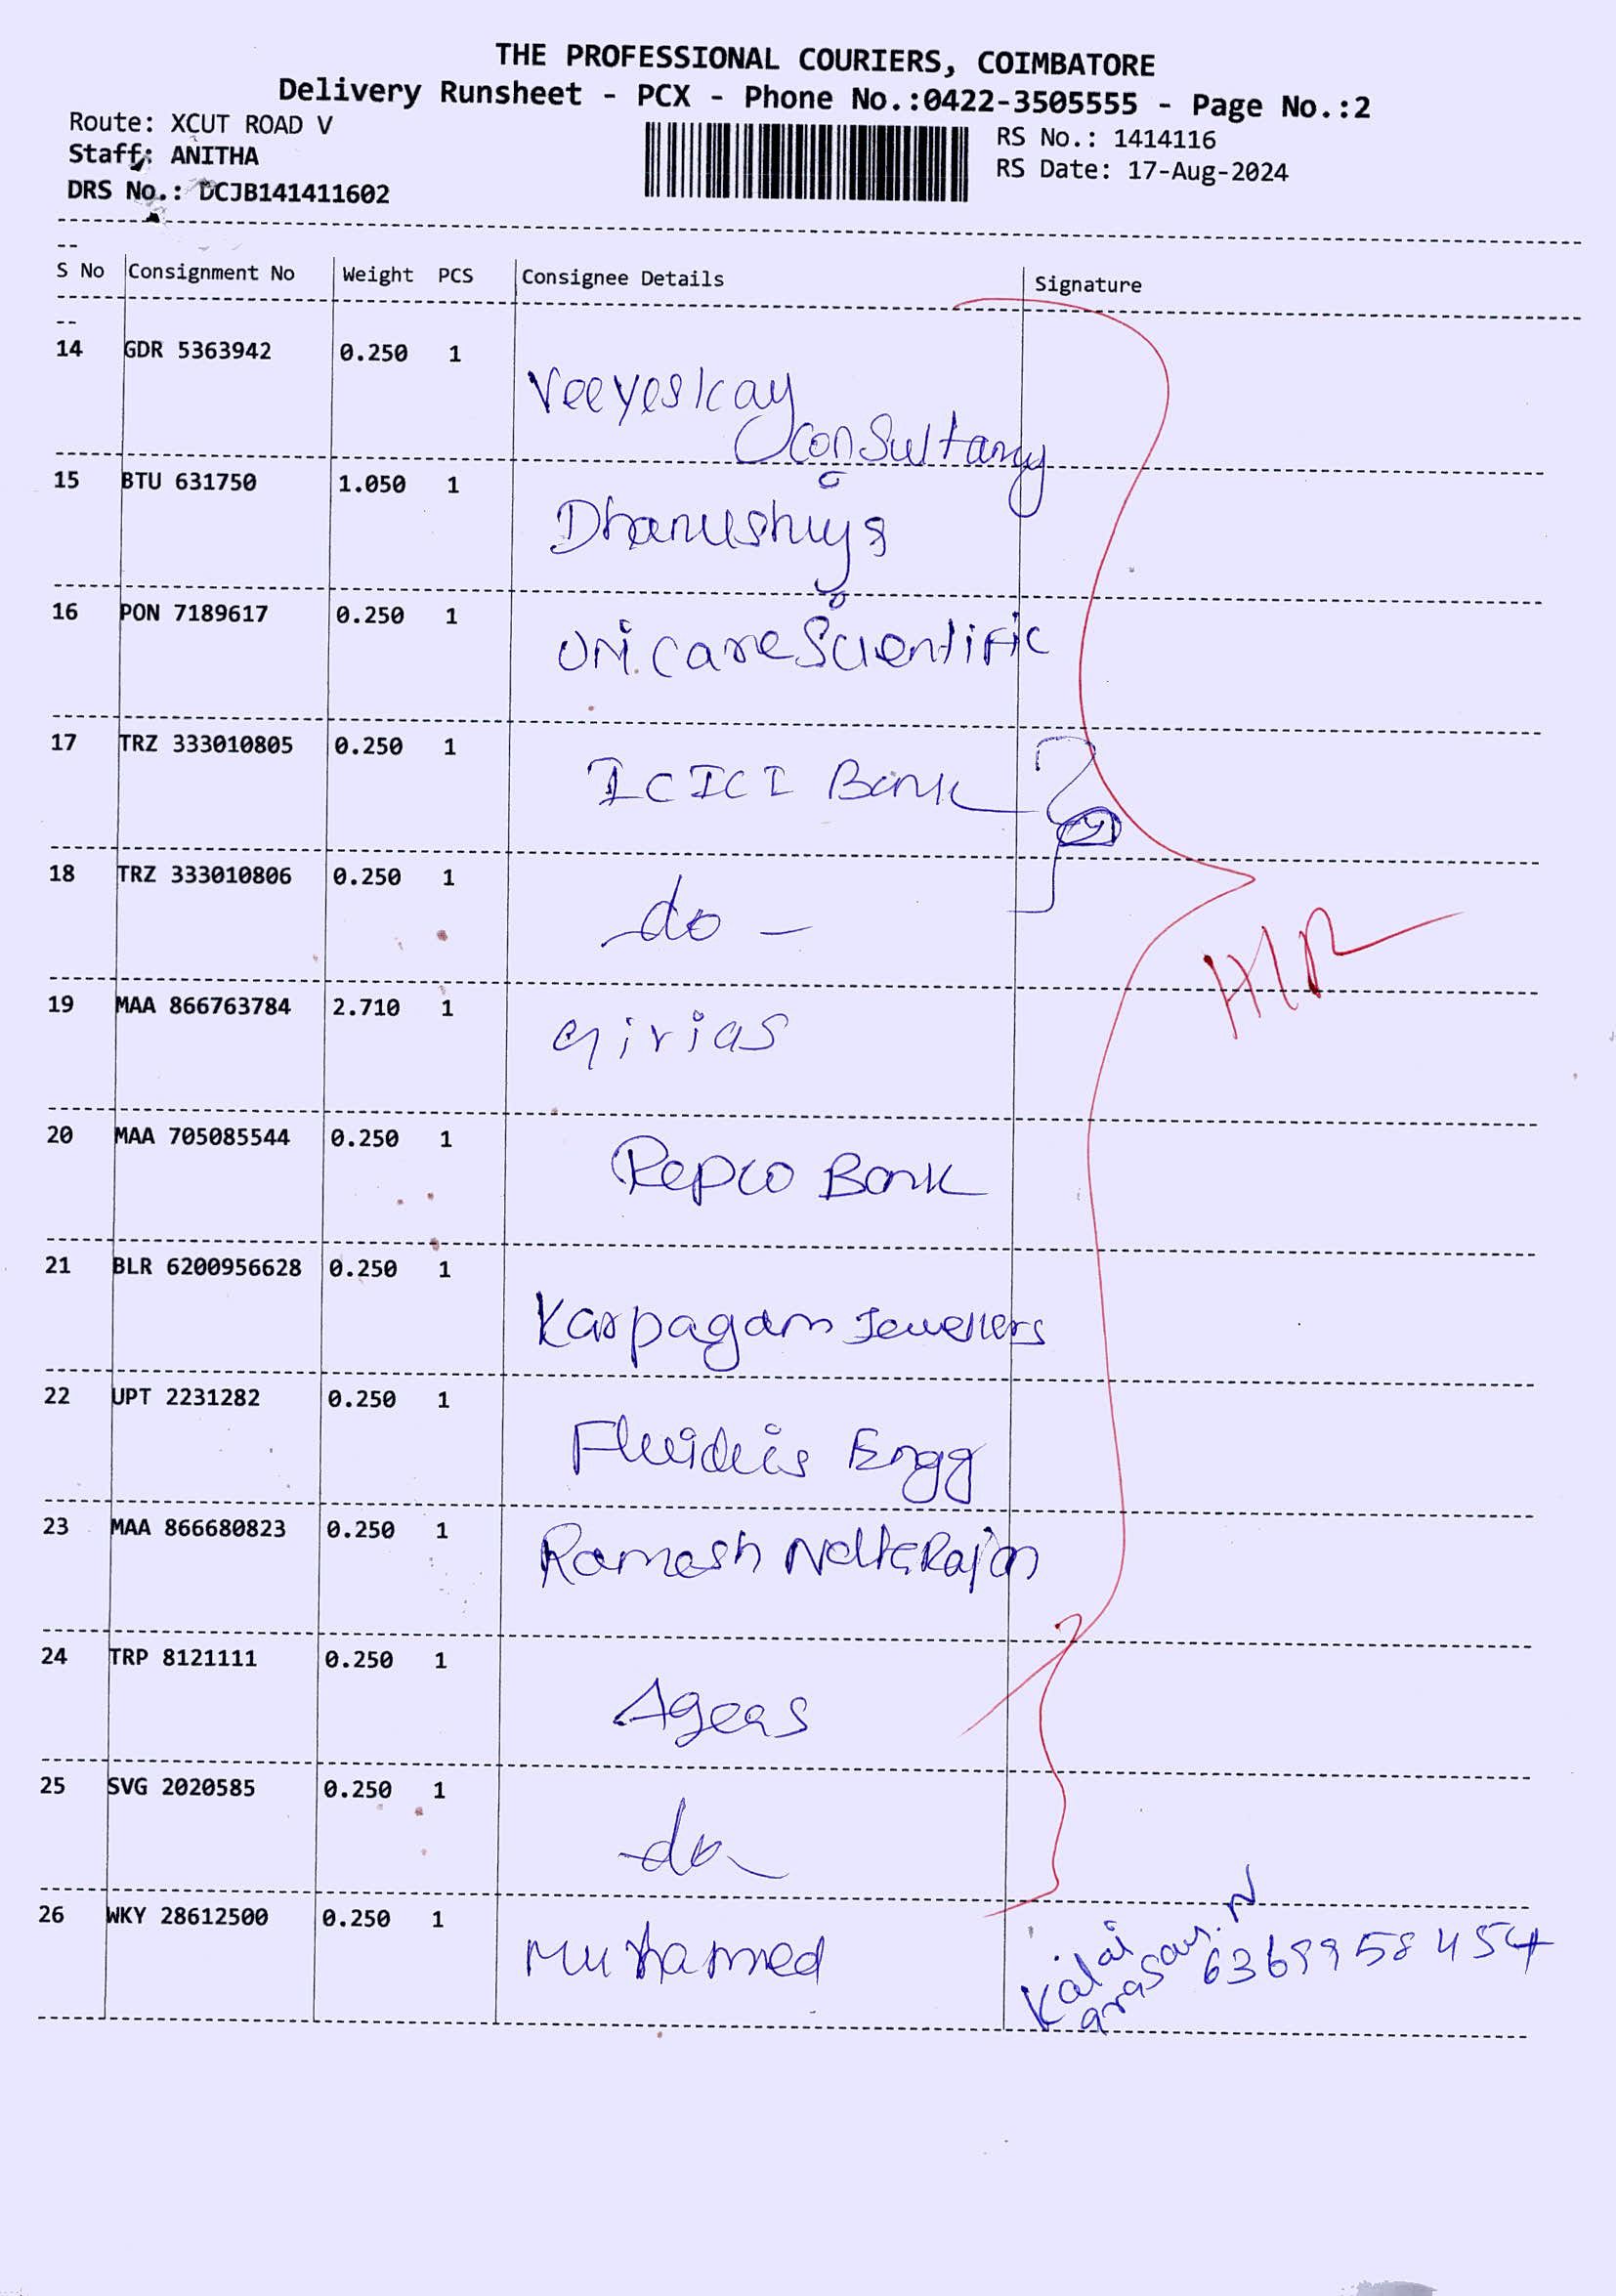 THE PROFESSIONAL COURIERS, COIMBATORE
Delivery Runsheet - PCX - Phone No.:0422-3505555 - Page No.:2
Route: XCUT ROAD V
Staff: ANITHA
DRS No.: DCJB141411602
RS No.: 1414116
RS Date: 17-Aug-2024
S No Consignment No Weight PCS Consignee Details Signature
14 GDR 5363942 0.250 1
Veeyeskay
Consultancy
15 BTU 631750 1.050 1
Dhanushiya
16 PON 7189617 0.250 1
Uni care Scientific
17 TRZ 333010805 0.250 1
ICICI Bank
18 TRZ 333010806 0.250 1
do -
H/R
19 MAA 866763784 2.710 1
Girias
20 MAA 705085544 0.250 1
Repco Bank
21 BLR 6200956628 0.250 1
Karpagam Jewellers
22 UPT 2231282 0.250 1
Engg
23 MAA 866680823 0.250 1
Ramesh
24 TRP 8121111 0.250 1
Ageas
25 SVG 2020585 0.250 1
do
26 WKY 28612500 0.250 1
Muhammed
Kalai
arasan. N
6369958454